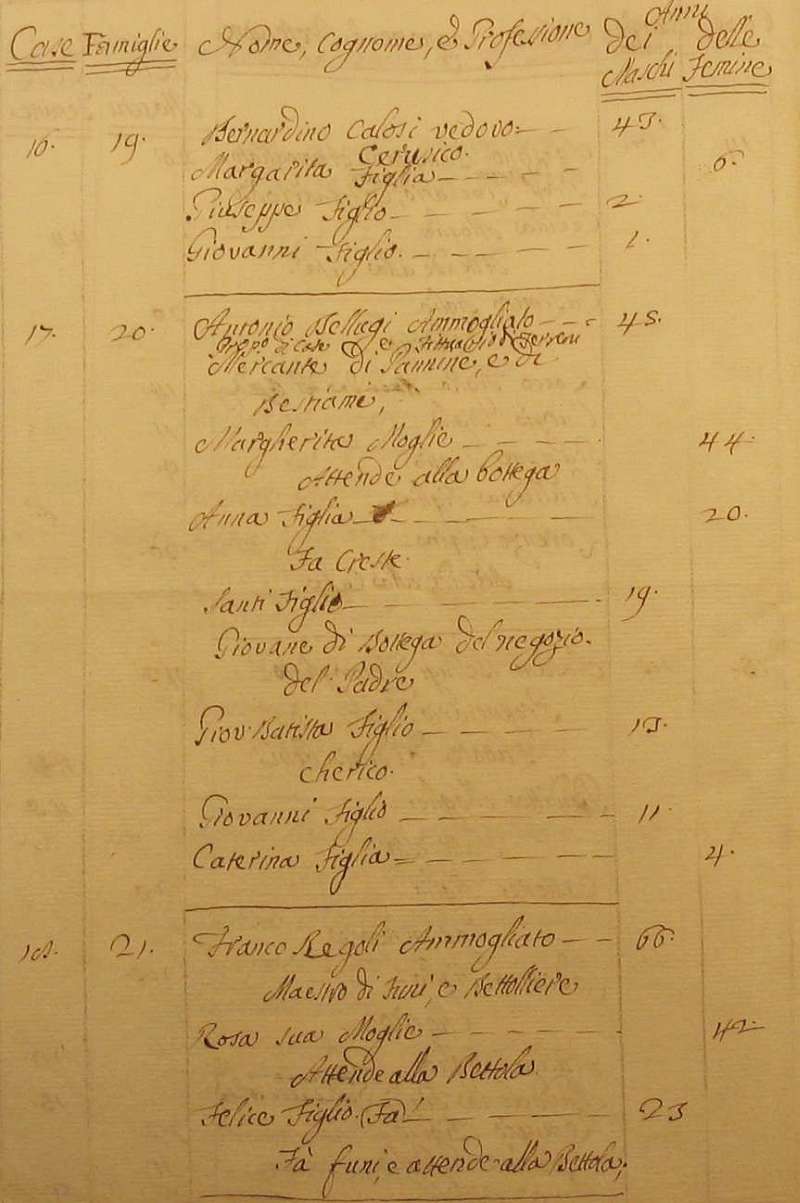 Case Famiglie Nome, Cognome, è Professione Anni dei Maschi delle Femine
16. 19. Bernardino Calosi vedovo 43.
Cerusico.
Margarita Figlia 6.
Giuseppe Figlio 2.
Giovanni Figlio. 1.
17. 20. Antonio Ammogliato 45.
di Case e
Mercante di Pannine, e di
Bestiami,
Margherita Moglie 44.
Attende alla bottega
Anna Figlia 20.
Fa Creste
Santi Figlio 19.
Giovane di Bottega del negozio
del Padre
Giov. Batista Figlio 13.
cherico.
Giovanni Figlio 11.
Caterina Figlia 4.
18. 21. Franco Regoli Ammogliato 66.
Maestro di Funi, e Bettoliere
Rosa sua Moglie 42.
Attende alla Bettola
Felice Figlio. (Fà) 23
Fà funi, e attende alla Bettola,